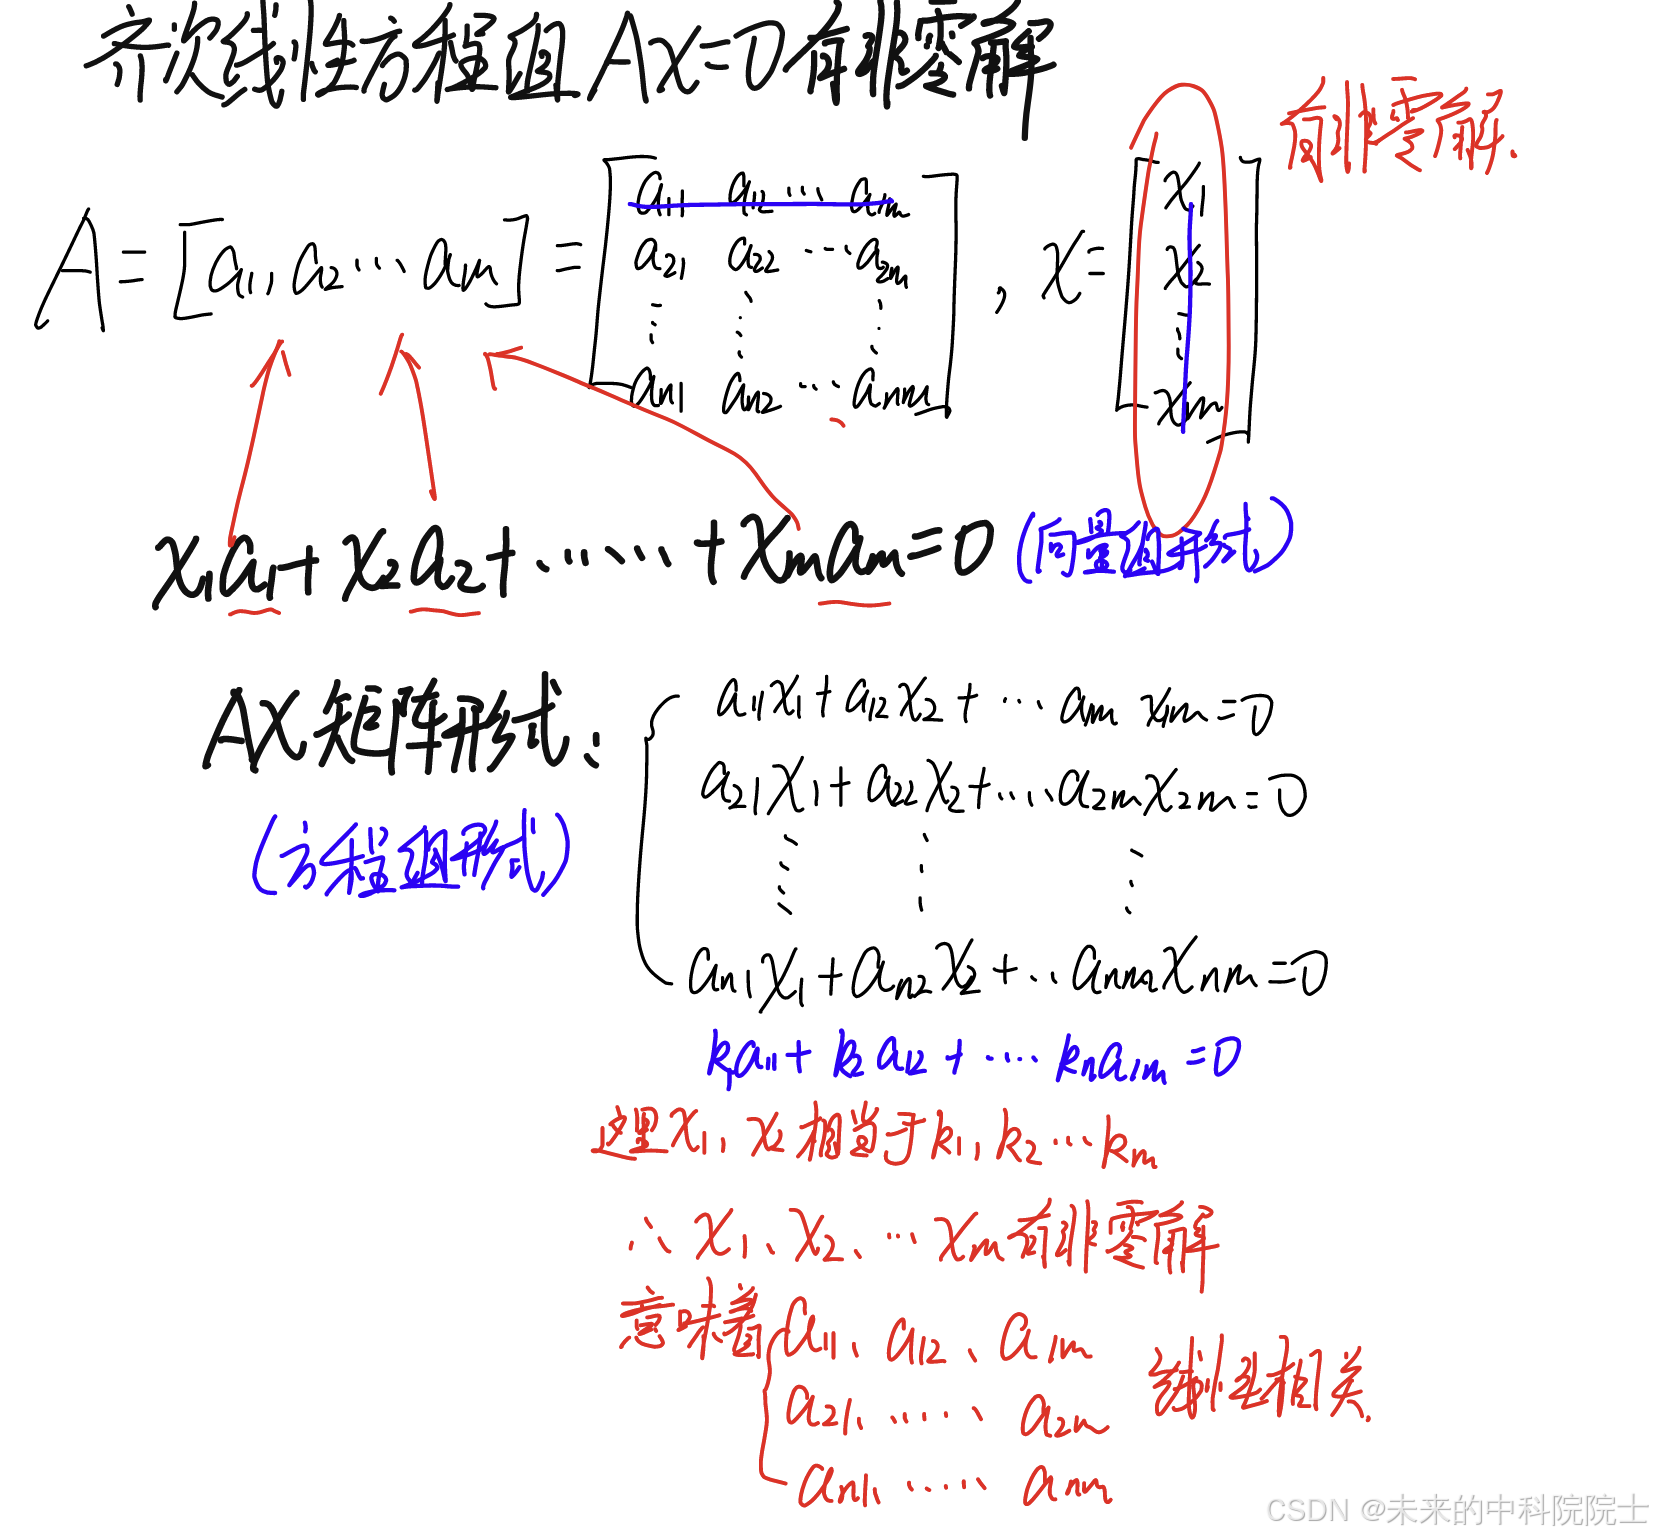 齐次线性方程组 Ax=0有非零解
有非零解.
A = [a₁, a₂ ··· aₘ] = [a₁₁ a₁₂ ··· a₁ₘ
a₂₁ a₂₂ ··· a₂ₘ
⋮ ⋮ ⋮
aₙ₁ aₙ₂ ··· aₙₘ] , x = [x₁
x₂
⋮
xₘ]
x₁a₁+ x₂a₂+ ······ + xₘaₘ=0 (向量组形式)
AX矩阵形式:
(方程组形式)
a₁₁x₁+a₁₂x₂+ ··· a₁ₘ x₁ₘ=0
a₂₁x₁+a₂₂x₂+····a₂ₘx₂ₘ=0
⋮ ⋮ ⋮
aₙ₁x₁+aₙ₂x₂+··aₙₘxₙₘ=0
k₁a₁₁+ k₂a₁₂ + ···· kₙa₁ₘ =0
这里x₁, x₂相当于k₁, k₂ ··· kₘ
∴ x₁、x₂、··· xₘ有非零解
意味着 a₁₁、a₁₂、a₁ₘ
a₂₁、····· a₂ₘ 线性相关.
aₙ₁、····· aₙₘ
CSDN @未来的中科院院士